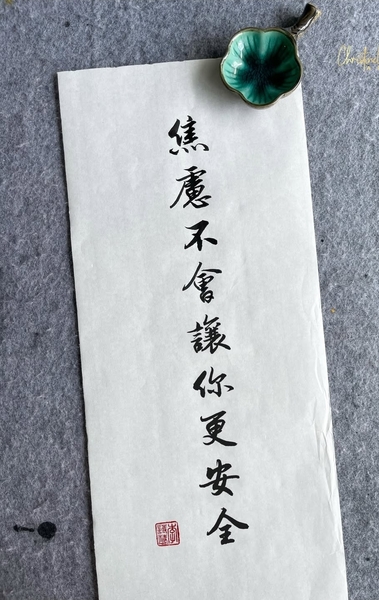 焦慮不會讓你更安全